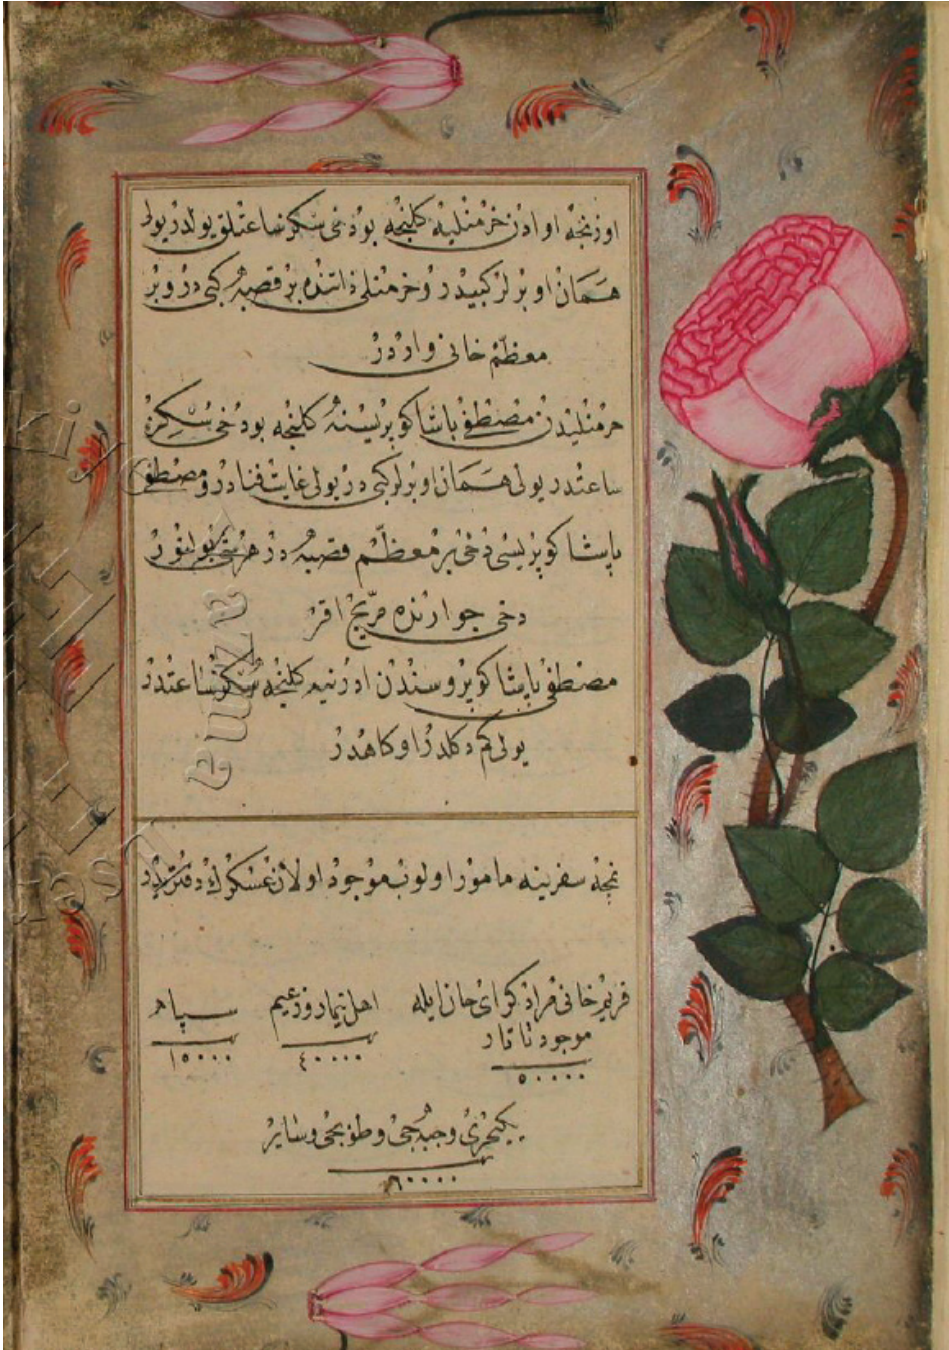 اوزنجه اوادن خرمنلیه کلنجه بو دخی سکز ساعتلق یولدر یولی
همان اوبرلر کبیدر و خرمنلی ذاتنده بر قصبه کبی در و بر
معظم خانی واردر
خرمنلیدن مصطفی پاشا کوپریسنه کلنجه بو دخی سکز
ساعتدر یولی همان اوبرلر کبی در یولی غایت فنادر و مصطفی
پاشا کوپریسی دخی بر معظم قصبه در هر شی بولنور
دخی جوارنده مریج اقر
مصطفی پاشا کوپروسندن ادرنیه کلنجه سکز ساعتدر
یولی کم دکلدر اوکاهدر
نجه سفرینه مامور اولوب موجود اولان عسکرك دفتریدر
قریم خانی مراد کرای خان ایله
موجود تاتار
٥٠٠٠٠
اهل تیمار و زعیم
٤٠٠٠٠
سپاه
١٥٠٠٠
یکیچری و جبه جی و طوپجی و سایر
٦٠٠٠٠